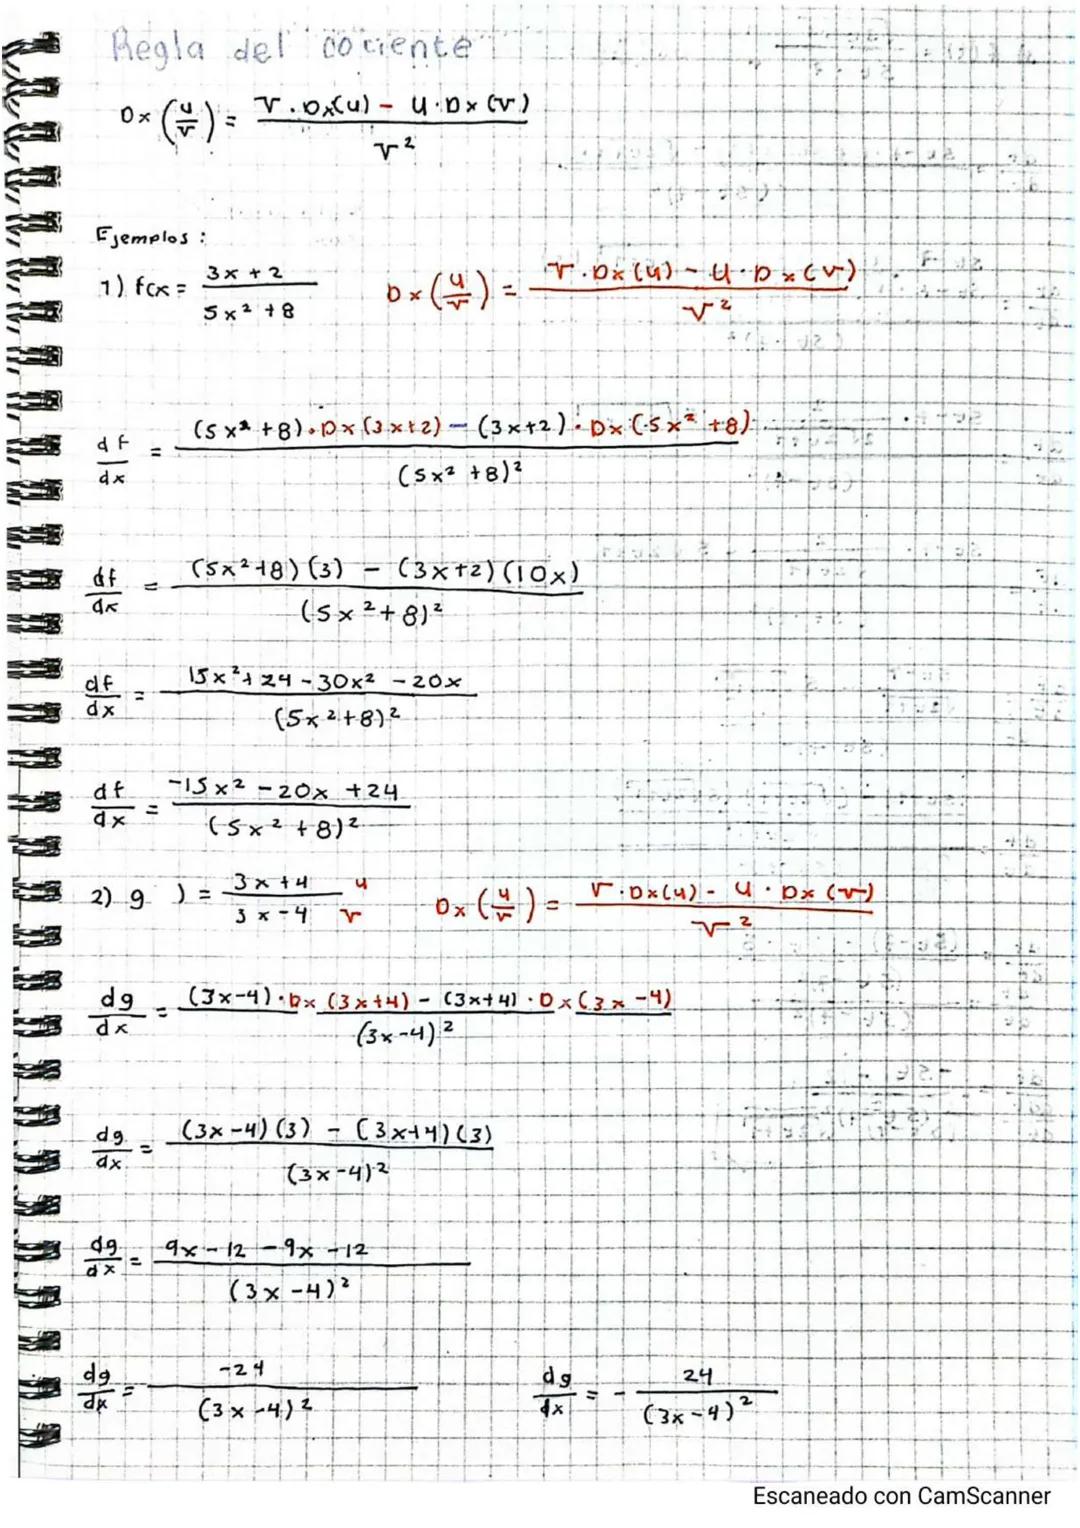 Regla del cociente
Dx (u/v) = v . Dx(u) - u . Dx (v) / v²
Ejemplos :
1) f(x = 3x + 2 / 5x² + 8    Dx (u/v) = v . Dx (u) - u . Dx (v) / v²
df/dx = (5x² + 8) . Dx (3x+2) - (3x+2) . Dx (5x² + 8) / (5x² + 8)²
df/dx = (5x² + 8) (3) - (3x+2) (10x) / (5x² + 8)²
df/dx = 15x² + 24 - 30x² - 20x / (5x² + 8)²
df/dx = -15x² - 20x + 24 / (5x² + 8)²
2) g ) = 3x + 4 / 3x - 4  u / v    Dx (u/v) = v . Dx(u) - u . Dx (v) / v²
dg/dx = (3x-4) . Dx (3x+4) - (3x+4) . Dx (3x-4) / (3x-4)²
dg/dx = (3x-4) (3) - (3x+4) (3) / (3x-4)²
dg/dx = 9x - 12 - 9x - 12 / (3x - 4)²
dg/dx = -24 / (3x-4)²    dg/dx = - 24 / (3x-4)²
Escaneado con CamScanner